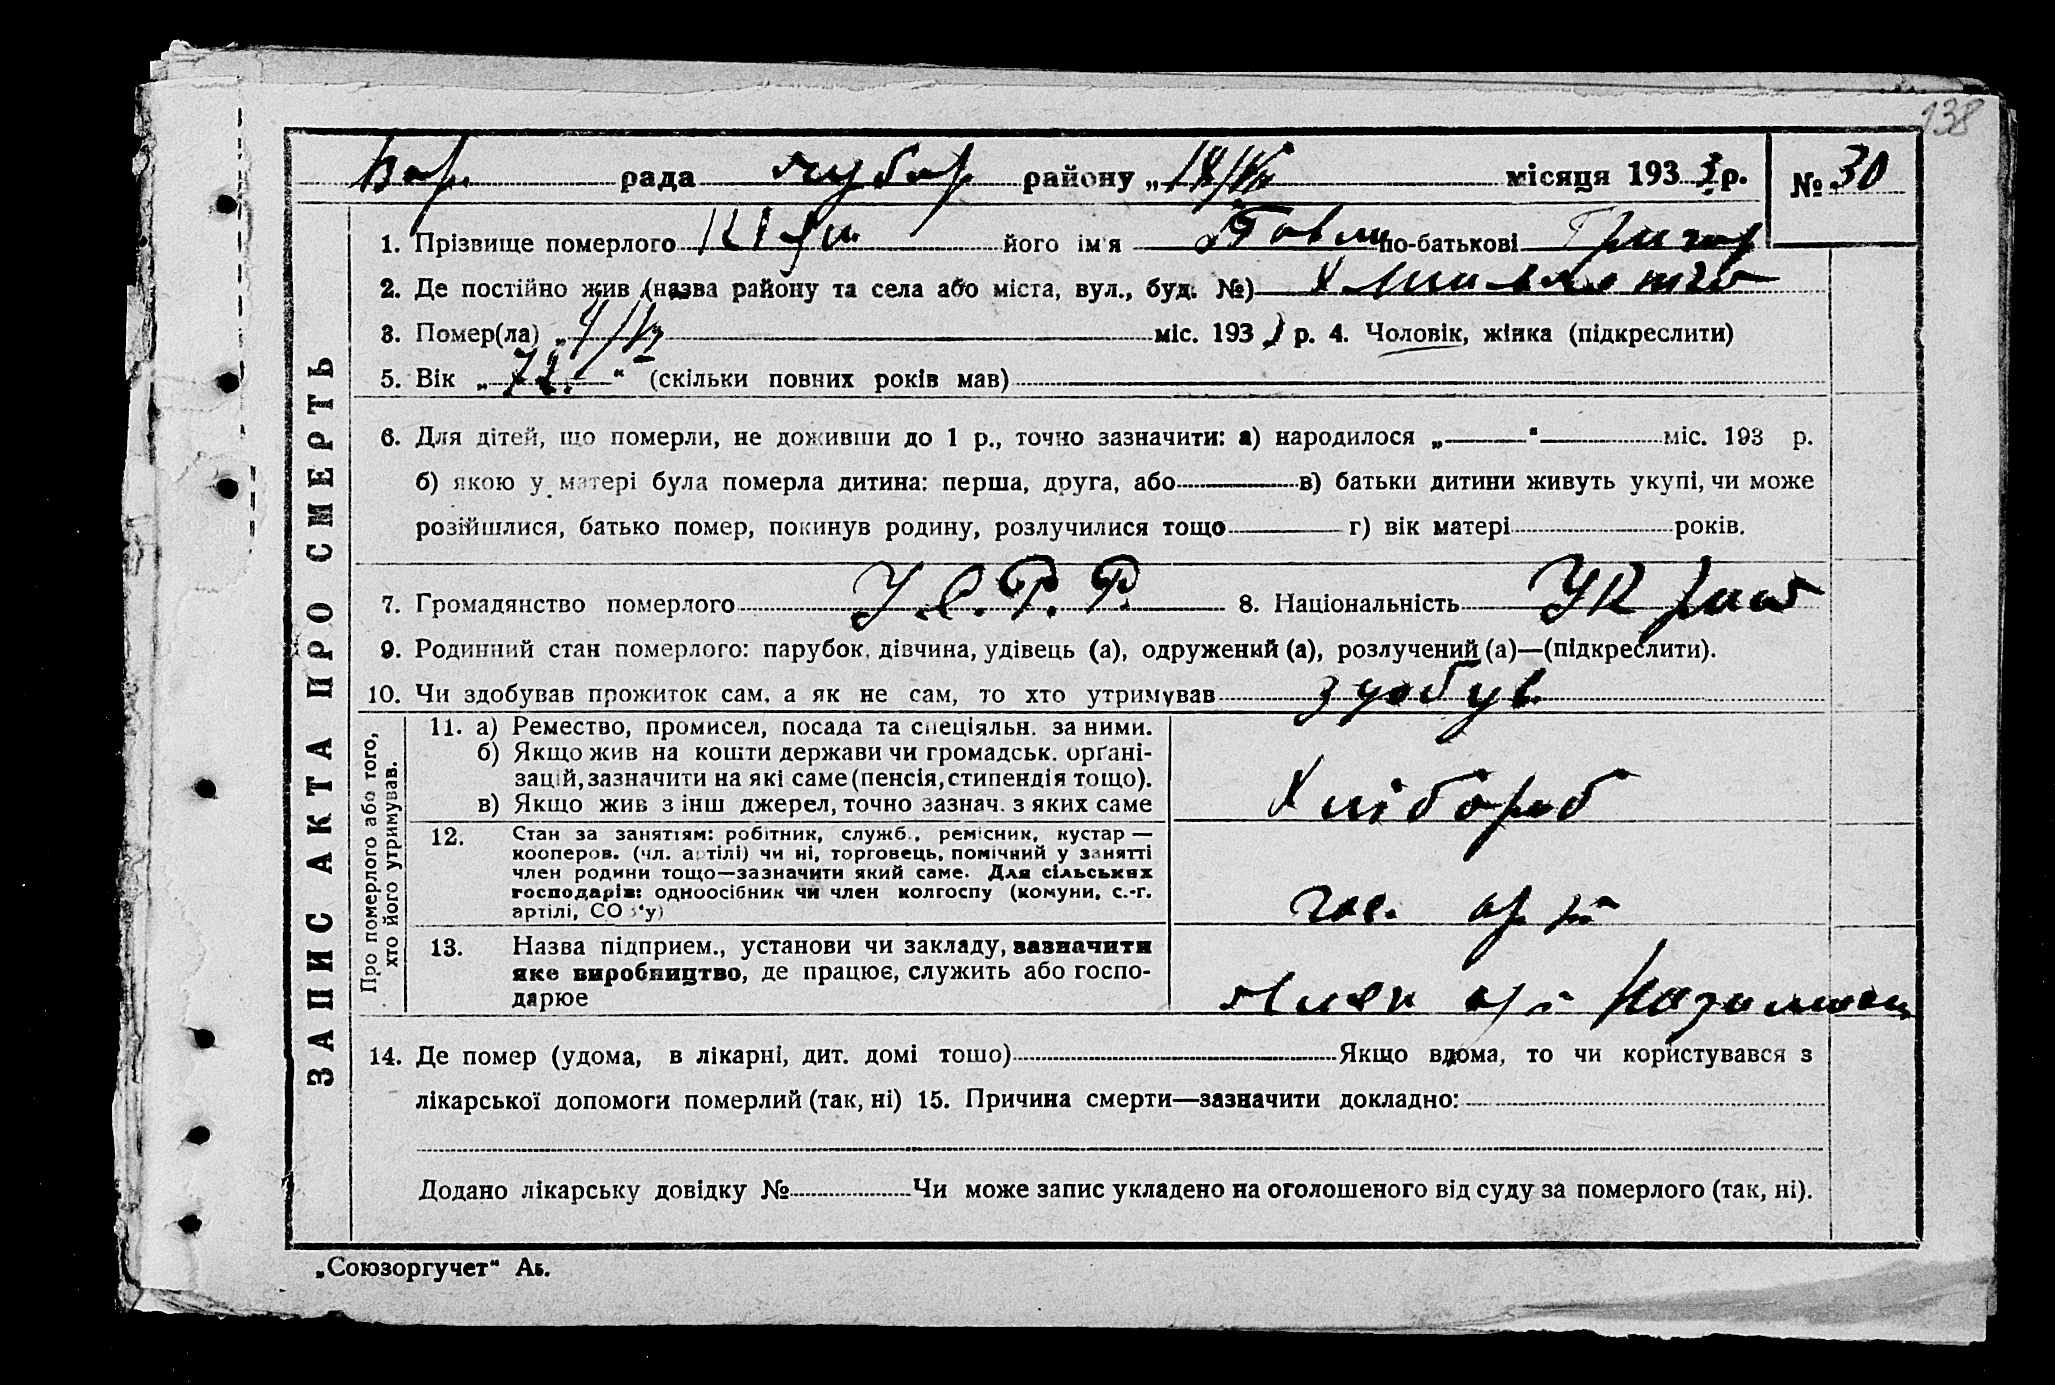 138
рада чубар району „ місяця 1933 р. № 30
1. Прізвище померлого його ім'я Павло по-батькові Григор
2. Де постійно жив (назва району та села або міста, вул., буд. №)
3. Помер(ла) „ міс. 193 р. 4. Чоловік, жінка (підкреслити)
5. Вік „72." (скільки повних років мав)
6. Для дітей, що померли, не доживши до 1 р., точно зазначити: а) народилося „ " міс. 193 р.
б) якою у матері була померла дитина: перша, друга, або в) батьки дитини живуть укупі, чи може
розійшлися, батько помер, покинув родину, розлучилися тощо г) вік матері років.
7. Громадянство померлого У.С.Р.Р. 8. Національність
9. Родинний стан померлого: парубок, дівчина, удівець (а), одружений (а), розлучений (а)—(підкреслити).
10. Чи здобував прожиток сам, а як не сам, то хто утримував здобув
ЗАПИС АКТА ПРО СМЕРТЬ
Про померлого або того,
хто його утримував.
11. а) Ремество, промисел, посада та спеціяльн. за ними.
б) Якщо жив на кошти держави чи громадськ. орґані-
зацій, зазначити на які саме (пенсія, стипендія тощо).
в) Якщо жив з інш джерел, точно зазнач. з яких саме
Хлібороб
12. Стан за заняттям: робітник, служб., ремісник, кустар —
кооперов. (чл. артілі) чи ні, торговець, помічний у занятті
член родини тощо—зазначити який саме. Для сільських
господарів: одноосібник чи член колгоспу (комуни, с.-г.
артілі, СО з'у)
13. Назва підприєм., установи чи закладу, зазначити
яке виробництво, де працює, служить або госпо-
дарює
член
14. Де помер (удома, в лікарні, дит. домі тошо) Якщо вдома, то чи користувався з
лікарської допомоги померлий (так, ні) 15. Причина смерти—зазначити докладно:
Додано лікарську довідку № Чи може запис укладено на оголошеного від суду за померлого (так, ні).
„Союзоргучет" Аб.